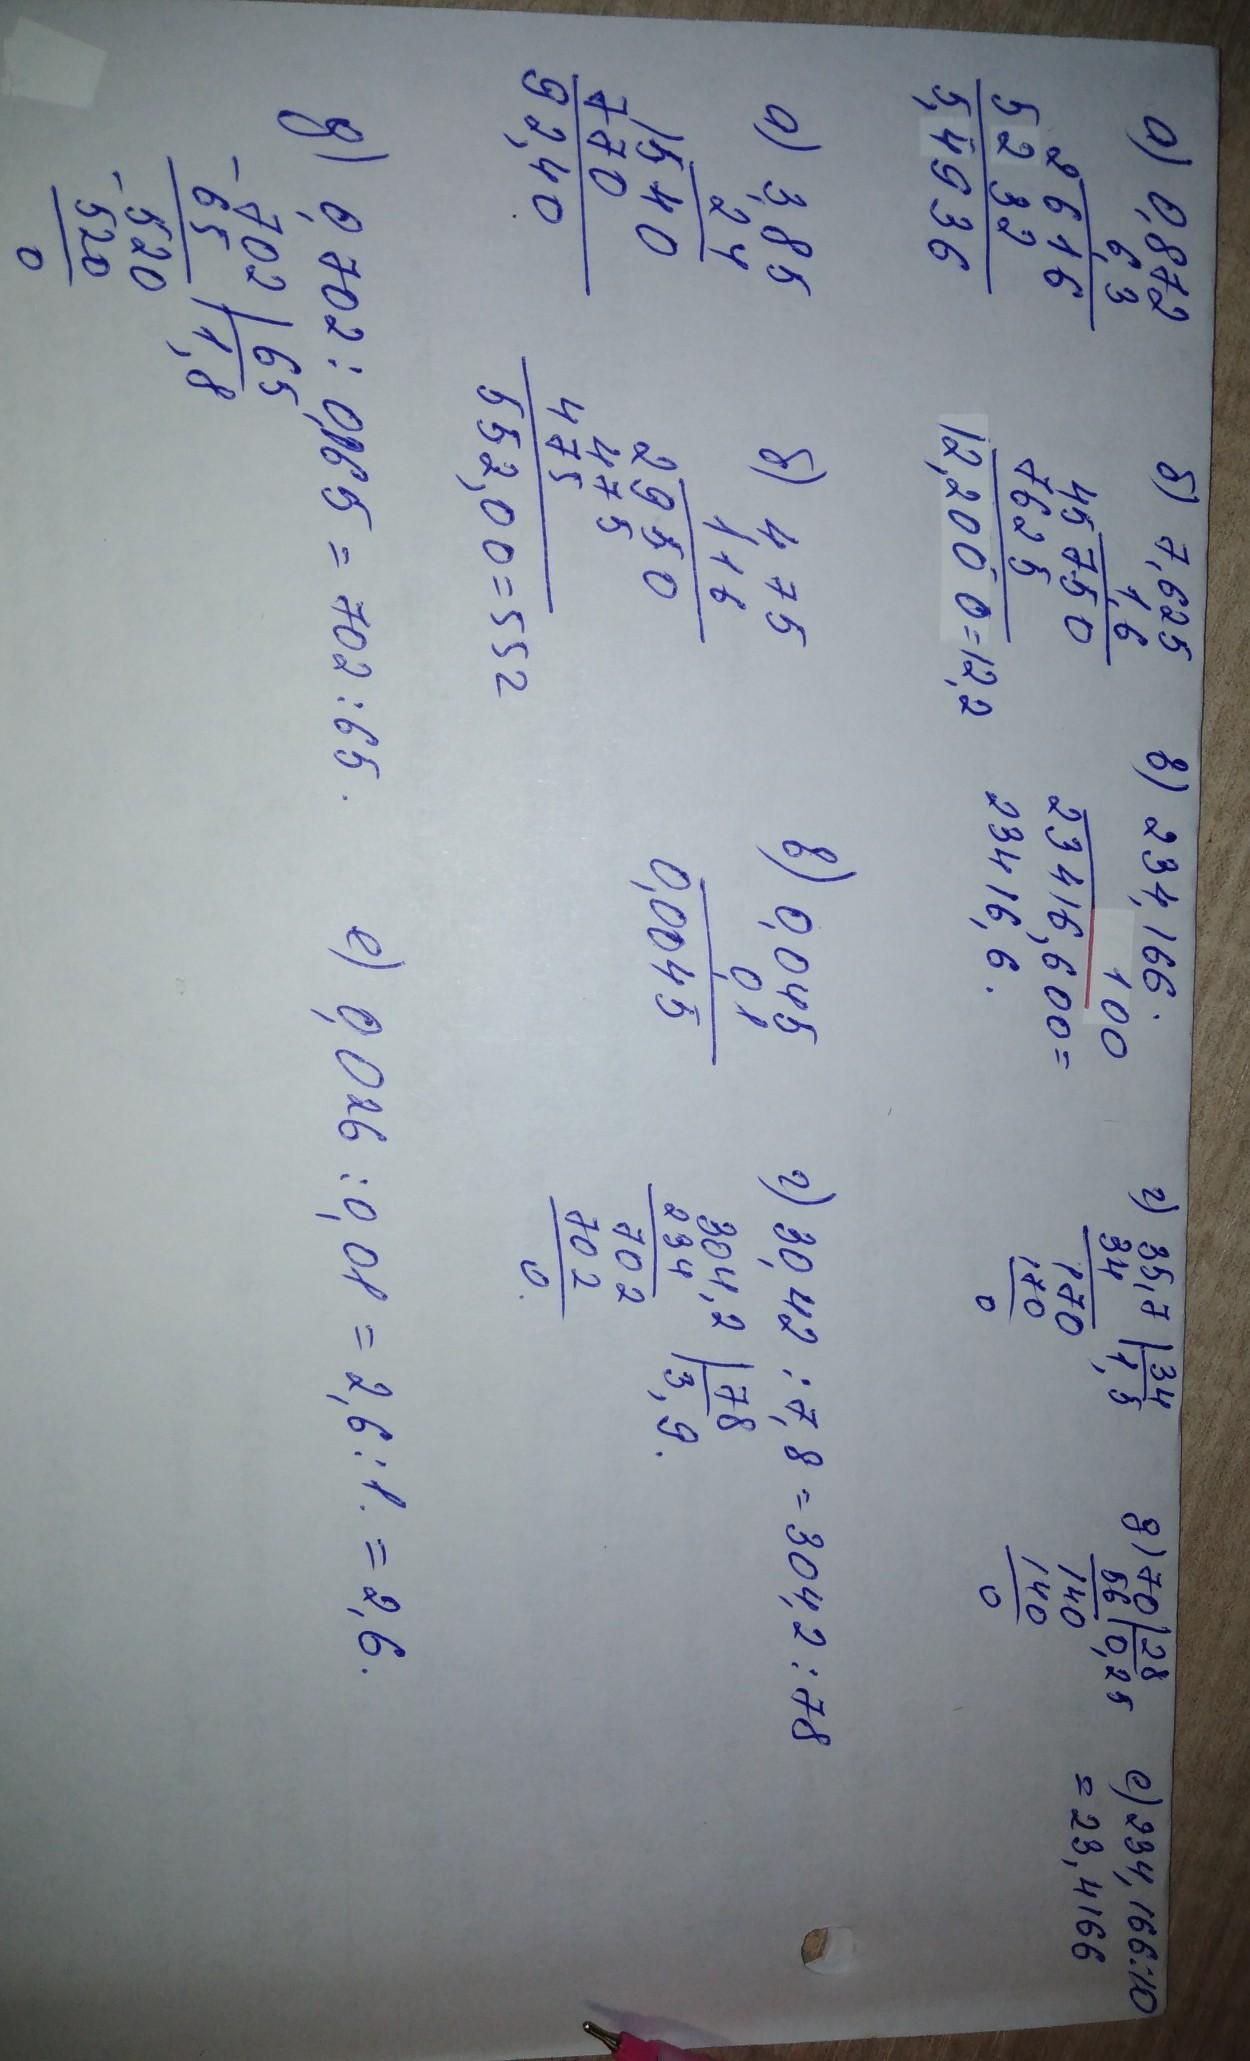 а) 0,872
6,3
2616
5232
5,4936
б) 7,625
1,6
45750
7625
12,2000=12,2
в) 234,166.
100
23416,600=
23416,6.
г) 35,7 | 34
34 | 1,5
170
170
0
д) 70 | 28
56 | 0,25
140
140
0
е) 234,166:10
=23,4166
а) 3,85
24
1540
770
92,40
б) 4,75
116
2950
475
475
552,00=552
в) 0,045
0,1
0,0045
г) 30,42:7,8=304,2:78
304,2 | 78
234 | 3,9.
702
702
0.
д) 0,702:0,065=702:65.
-702 | 65
65 | 1,8
-520
520
0
е) 0,026:0,01=2,6:1.=2,6.